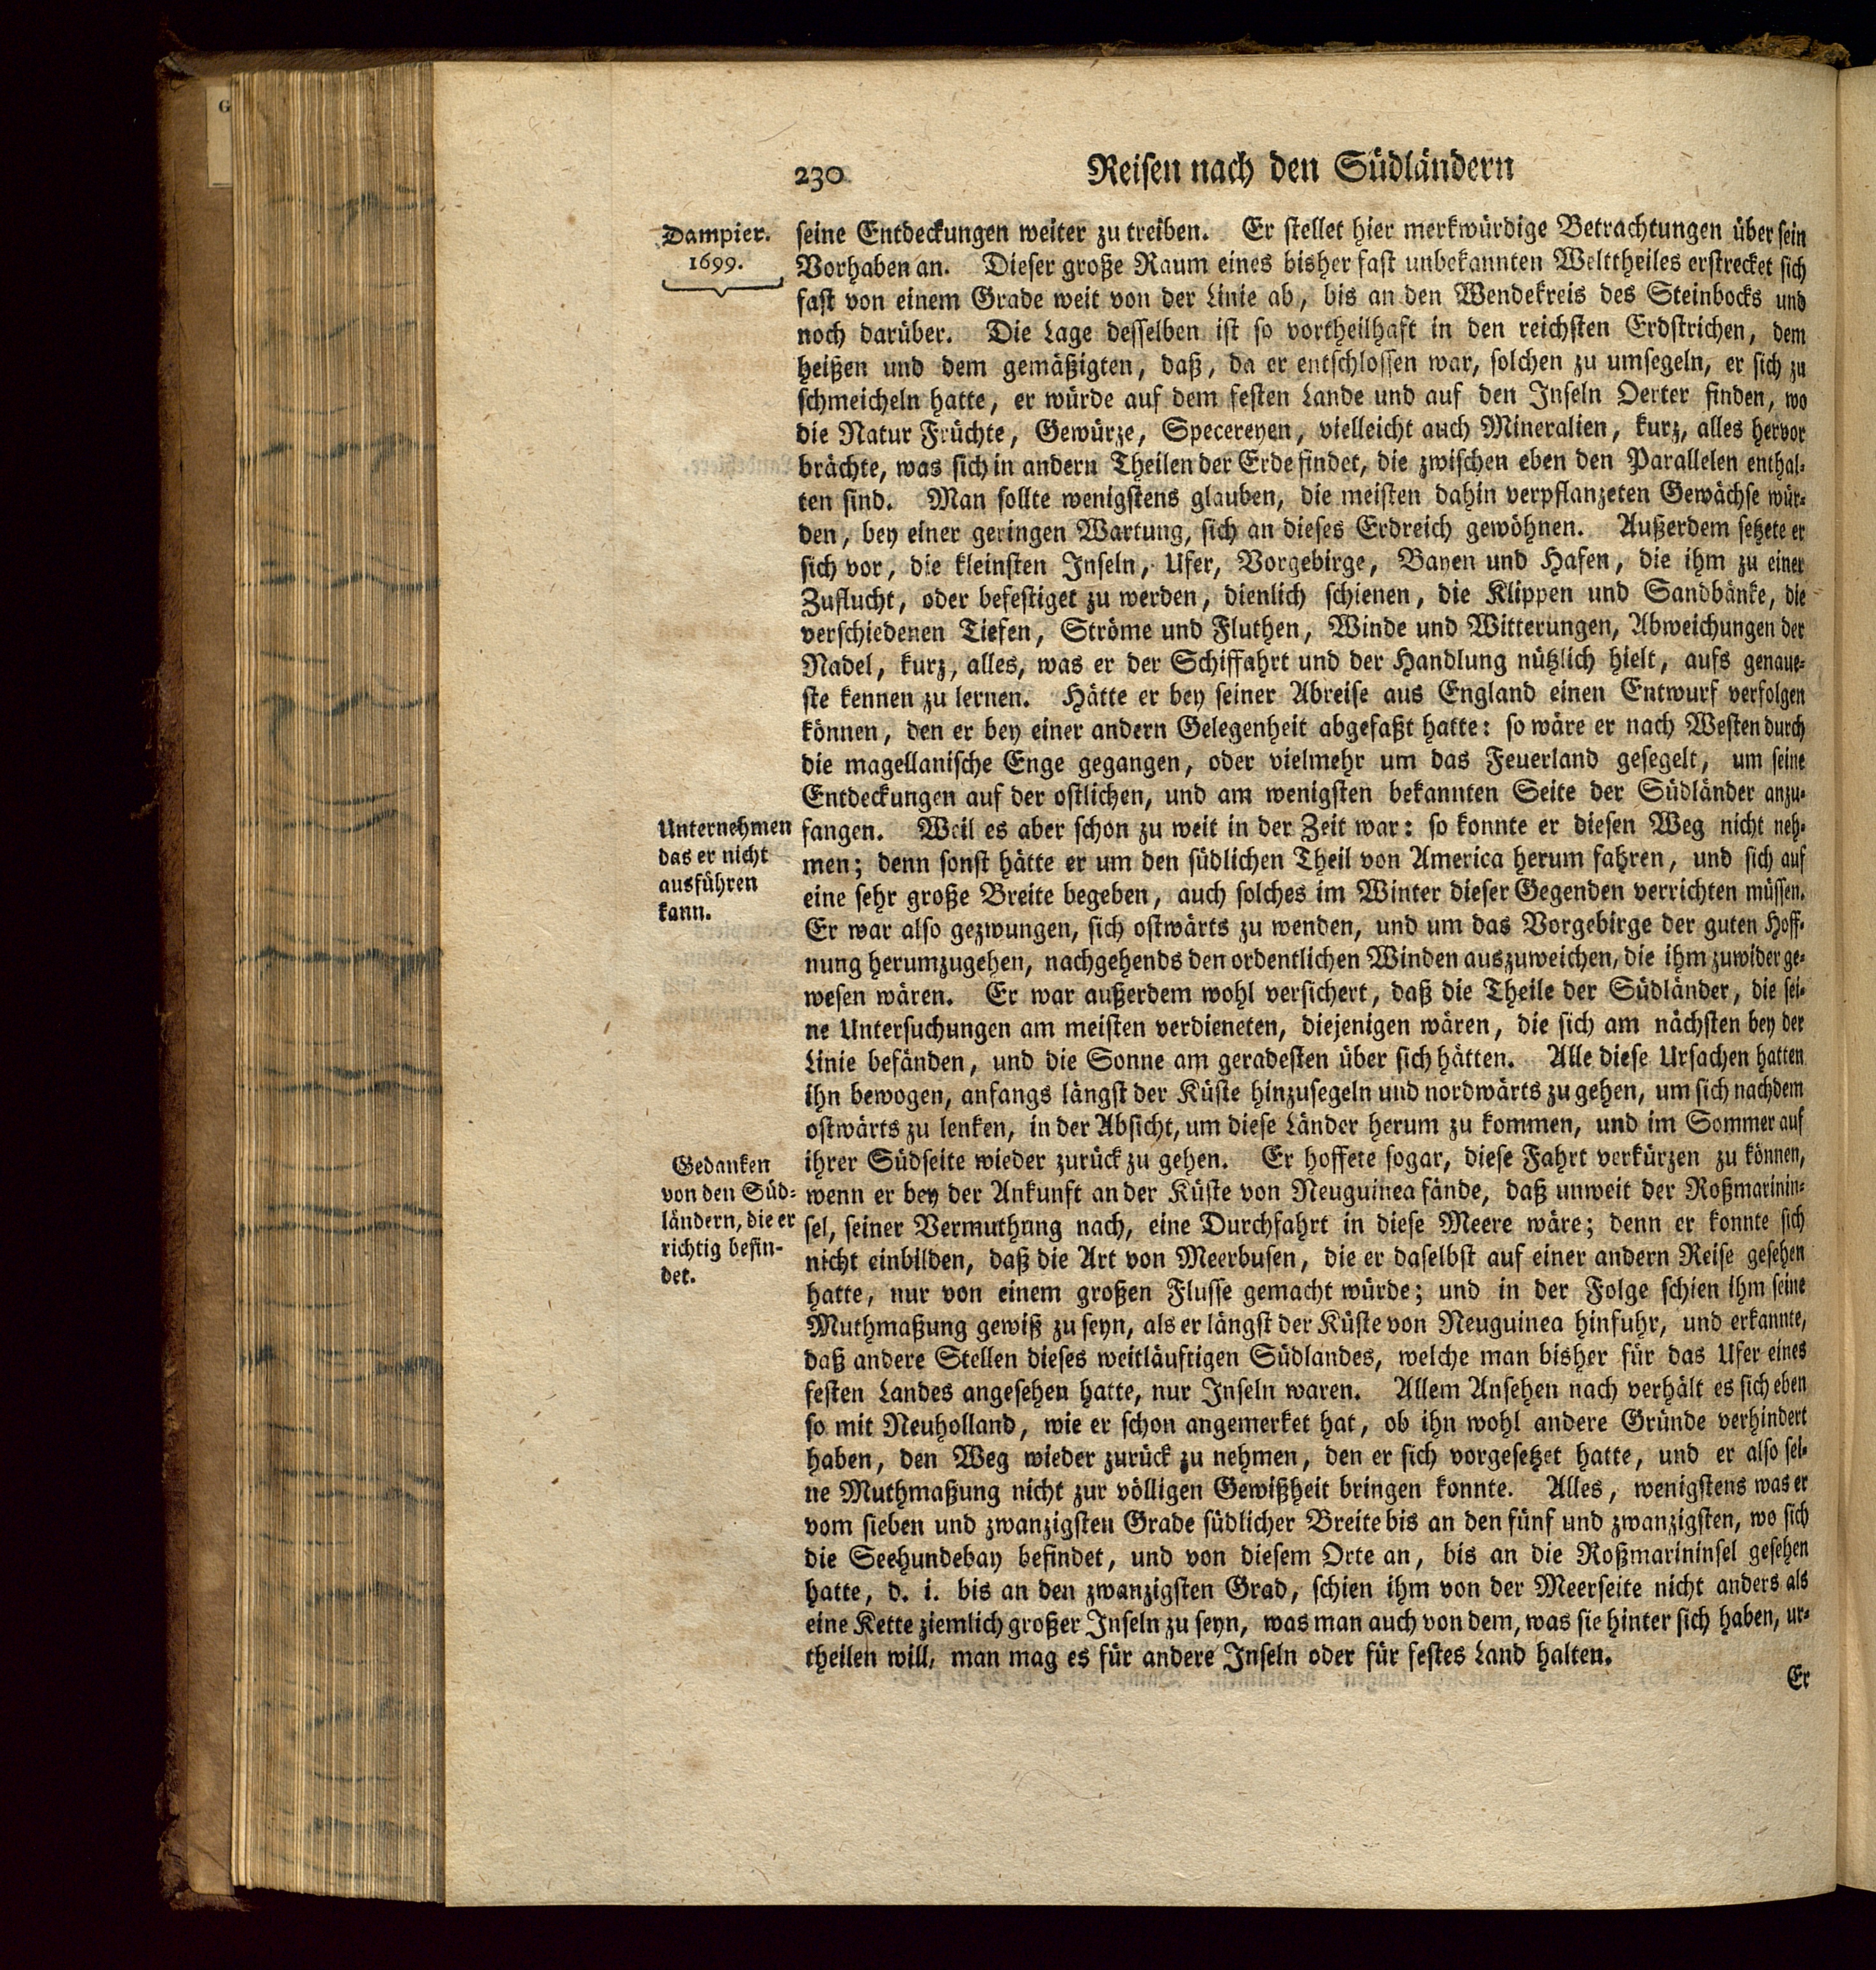 G
230 Reisen nach den Südländern
Dampier.
1699.
seine Entdeckungen weiter zu treiben. Er stellet hier merkwürdige Betrachtungen über sein
Vorhaben an. Dieser große Raum eines bisher fast unbekannten Welttheiles erstrecket sich
fast von einem Grade weit von der Linie ab, bis an den Wendekreis des Steinbocks und
noch darüber. Die Lage desselben ist so vortheilhaft in den reichsten Erdstrichen, dem
heißen und dem gemäßigten, daß, da er entschlossen war, solchen zu umsegeln, er sich zu
schmeicheln hatte, er würde auf dem festen Lande und auf den Inseln Oerter finden, wo
die Natur Früchte, Gewürze, Specereyen, vielleicht auch Mineralien, kurz, alles hervor
brächte, was sich in andern Theilen der Erde findet, die zwischen eben den Parallelen enthal-
ten sind. Man sollte wenigstens glauben, die meisten dahin verpflanzeten Gewächse wür-
den, bey einer geringen Wartung, sich an dieses Erdreich gewöhnen. Außerdem setzete er
sich vor, die kleinsten Inseln, Ufer, Vorgebirge, Bayen und Hafen, die ihm zu einer
Zuflucht, oder befestiget zu werden, dienlich schienen, die Klippen und Sandbänke, die
verschiedenen Tiefen, Ströme und Fluthen, Winde und Witterungen, Abweichungen der
Nadel, kurz, alles, was er der Schiffahrt und der Handlung nützlich hielt, aufs genaue-
ste kennen zu lernen. Hätte er bey seiner Abreise aus England einen Entwurf verfolgen
können, den er bey einer andern Gelegenheit abgefaßt hatte: so wäre er nach Westen durch
die magellanische Enge gegangen, oder vielmehr um das Feuerland gesegelt, um seine
Entdeckungen auf der ostlichen, und am wenigsten bekannten Seite der Südländer anzu-
Unternehmen
das er nicht
ausführen
kann.
fangen. Weil es aber schon zu weit in der Zeit war: so konnte er diesen Weg nicht neh-
men; denn sonst hätte er um den südlichen Theil von America herum fahren, und sich auf
eine sehr große Breite begeben, auch solches im Winter dieser Gegenden verrichten müssen.
Er war also gezwungen, sich ostwärts zu wenden, und um das Vorgebirge der guten Hoff-
nung herumzugehen, nachgehends den ordentlichen Winden auszuweichen, die ihm zuwider ge-
wesen wären. Er war außerdem wohl versichert, daß die Theile der Südländer, die sei-
ne Untersuchungen am meisten verdieneten, diejenigen wären, die sich am nächsten bey der
Linie befänden, und die Sonne am geradesten über sich hätten. Alle diese Ursachen hatten
ihn bewogen, anfangs längst der Küste hinzusegeln und nordwärts zu gehen, um sich nachdem
ostwärts zu lenken, in der Absicht, um diese Länder herum zu kommen, und im Sommer auf
Gedanken
von den Süd-
ländern, die er
richtig befin-
det.
ihrer Südseite wieder zurück zu gehen. Er hoffete sogar, diese Fahrt verkürzen zu können,
wenn er bey der Ankunft an der Küste von Neuguinea fände, daß unweit der Roßmarinin-
sel, seiner Vermuthung nach, eine Durchfahrt in diese Meere wäre; denn er konnte sich
nicht einbilden, daß die Art von Meerbusen, die er daselbst auf einer andern Reise gesehen
hatte, nur von einem großen Flusse gemacht würde; und in der Folge schien ihm seine
Muthmaßung gewiß zu seyn, als er längst der Küste von Neuguinea hinfuhr, und erkannte,
daß andere Stellen dieses weitläuftigen Südlandes, welche man bisher für das Ufer eines
festen Landes angesehen hatte, nur Inseln waren. Allem Ansehen nach verhält es sich eben
so mit Neuholland, wie er schon angemerket hat, ob ihn wohl andere Gründe verhindert
haben, den Weg wieder zurück zu nehmen, den er sich vorgesetzet hatte, und er also sei-
ne Muthmaßung nicht zur völligen Gewißheit bringen konnte. Alles, wenigstens was er
vom sieben und zwanzigsten Grade südlicher Breite bis an den fünf und zwanzigsten, wo sich
die Seehundebay befindet, und von diesem Orte an, bis an die Roßmarininsel gesehen
hatte, d. i. bis an den zwanzigsten Grad, schien ihm von der Meerseite nicht anders als
eine Kette ziemlich großer Inseln zu seyn, was man auch von dem, was sie hinter sich haben, ur-
theilen will, man mag es für andere Inseln oder für festes Land halten.
Er